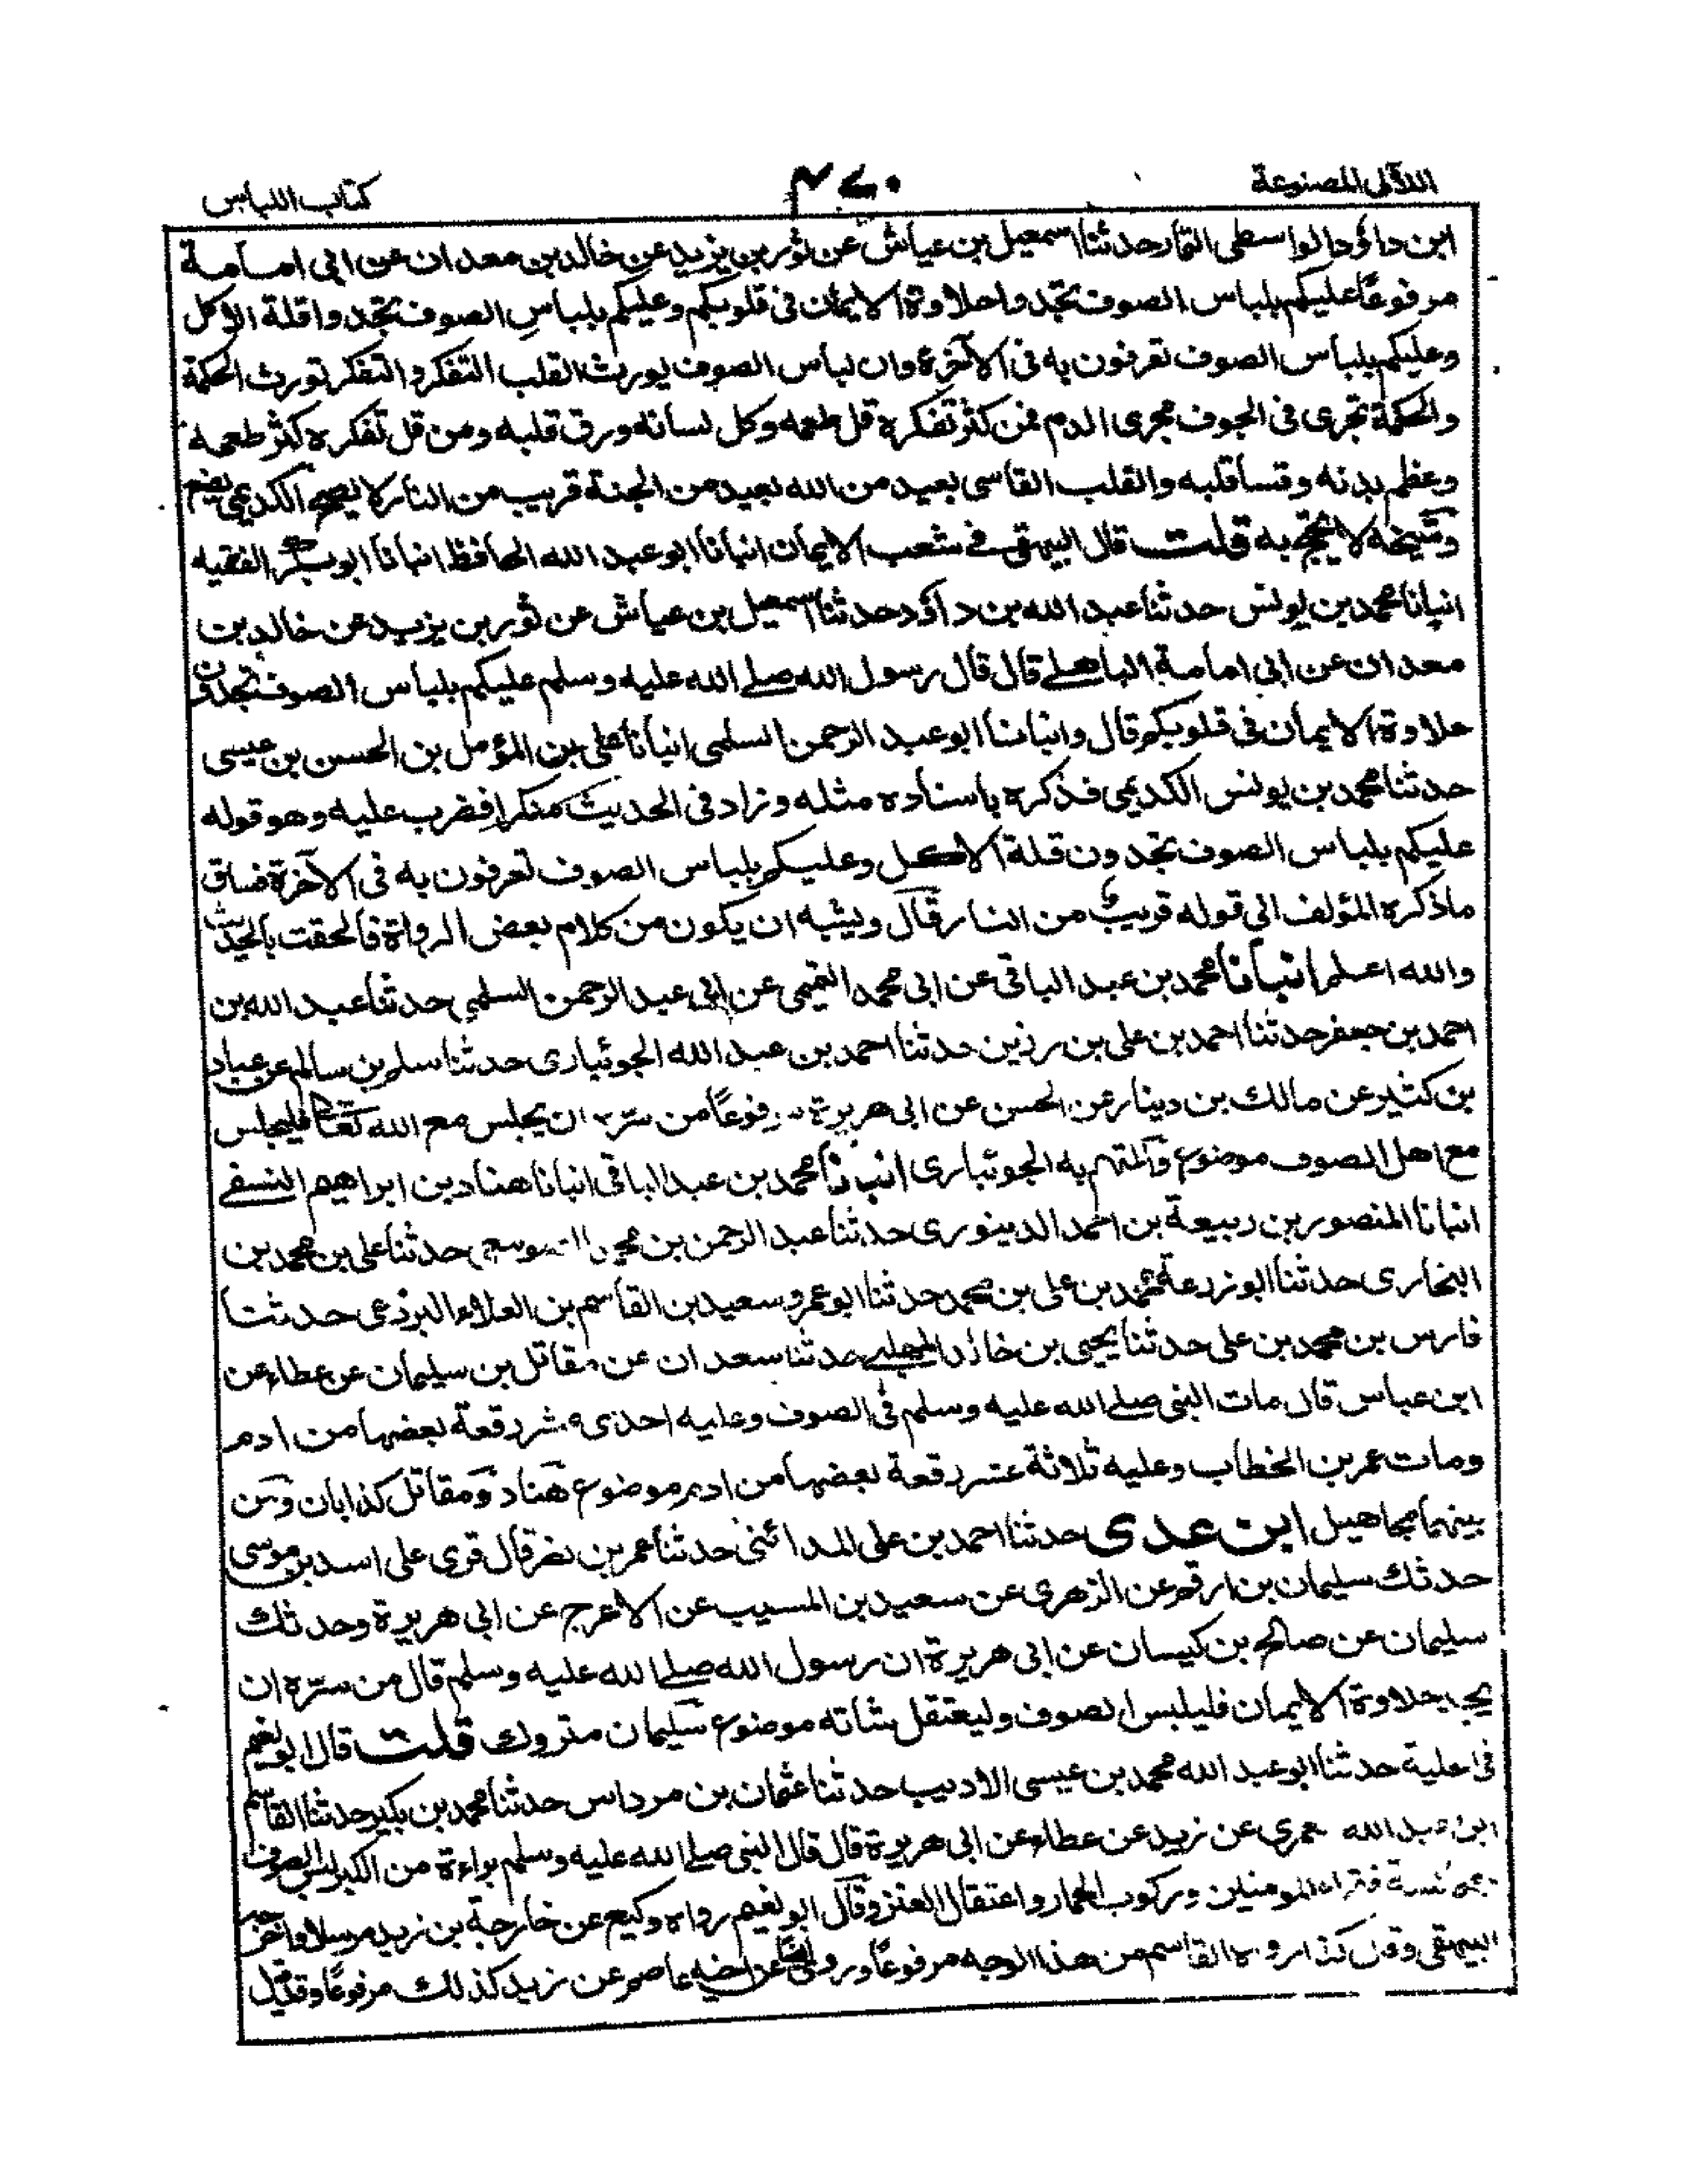 اللآلى المصنوعة
٤٧٠
كتاب اللباس
ابن داؤد الواسطى التمار حدثنا اسمعيل بن عياش عن ثور بن يزيد عن خالد بن معدان عن ابى امامة
مرفوعًا عليكم بلباس الصوف تجدوا حلاوة الايمان فى قلوبكم وعليكم بلباس الصوف تجدوا قلة الاكل
وعليكم بلباس الصوف تعرفون به فى الآخرة وان لباس الصوف يورث القلب التفكر والتفكر تورث الحكمة
والحكمة تجرى فى الجوف مجرى الدم فمن كثر تفكره قل طعمه وكل لسانه ورق قلبه ومن قل تفكره كثر طعمه
وعظم بدنه وقسا قلبه والقلب القاسى بعيد من الله بعيد من الجنة قريب من النار لا يصح الكديمى يضع
وشيخه لا يحتج به قلت قال البيهقى فى شعب الايمان انبانا ابو عبد الله الحافظ انبانا ابو بكر الفقيه
انبانا محمد بن يونس حدثنا عبد الله بن داؤد حدثنا اسمعيل بن عياش عن ثور بن يزيد عن خالد بن
معدان عن ابى امامة الباهلى قال قال رسول الله صلى الله عليه وسلم عليكم بلباس الصوف تجدون
حلاوة الايمان فى قلوبكم قال وانبانا ابو عبد الرحمن السلمى انبانا على بن المؤمل بن الحسن بن عيسى
حدثنا محمد بن يونس الكديمى فذكره باسناده مثله وزاد فى الحديث منكرا فضرب عليه وهو قوله
عليكم بلباس الصوف تجدون قلة الاكل وعليكم بلباس الصوف تعرفون به فى الآخرة فساق
ما ذكره المؤلف الى قوله قريب من النار قال ويشبه ان يكون من كلام بعض الرواة فالحقت بالحديث
والله اعلم انبانا محمد بن عبد الباقى عن ابى محمد التميمى عن ابى عبد الرحمن السلمى حدثنا عبد الله بن
احمد بن جعفر حدثنا احمد بن على بن رزين حدثنا احمد بن عبد الله الجوئبارى حدثنا سلم بن سالم عن عباد
بن كثير عن مالك بن دينار عن الحسن عن ابى هريرة مرفوعًا من سره ان يجلس مع الله تعالى فليجلس
مع اهل الصوف موضوع والمتهم به الجوئبارى انبانا محمد بن عبد الباقى انبانا هناد بن ابراهيم النسفى
انبانا المنصور بن ربيعة بن احمد الدينورى حدثنا عبد الرحمن بن محمد حدثنا على بن محمد بن
البخارى حدثنا ابو زرعة محمد بن على بن محمد حدثنا ابو عمرو سعيد بن القاسم بن العلاء البرذعى حدثنا
فارس بن محمد بن على حدثنا يحيى بن خالد المهلبى حدثنا سعدان عن مقاتل بن سليمان عن عطاء عن
ابن عباس قال مات النبى صلى الله عليه وسلم فى الصوف وعليه احدى عشر رقعة بعضها من ادم
ومات عمر بن الخطاب وعليه ثلاثة عشر رقعة بعضها من ادم موضوع هناد ومقاتل كذابان ومن
بينهما مجاهيل ابن عدى حدثنا احمد بن على المدائنى حدثنا عمر بن نصر قال قرى على اسد بن موسى
حدثك سليمان بن ارقم عن الزهرى عن سعيد بن المسيب عن الاعرج عن ابى هريرة وحدثك
سليمان عن صالح بن كيسان عن ابى هريرة ان رسول الله صلى الله عليه وسلم قال من سره ان
يجد حلاوة الايمان فليلبس الصوف وليعتقل شاته موضوع سليمان متروك قلت قال ابو نعيم
فى الحلية حدثنا ابو عبد الله محمد بن عيسى الاديب حدثنا عثمان بن مرداس حدثنا محمد بن بكير حدثنا القاسم
ابن عبد الله العمرى عن زيد عن عطاء عن ابى هريرة قال قال النبى صلى الله عليه وسلم براءة من الكبر لبس الصوف
ومجالسة فقراء المومنين وركوب الحمار واعتقال العنز وقال ابو نعيم رواه وكيع عن خارجة بن زيد مرسلا واخرجه
البيهقى وقال كذا رواه القاسم من هذا الوجه مرفوعًا وروى عن اخيه عاصم عن زيد كذلك مرفوعًا وقد قيل